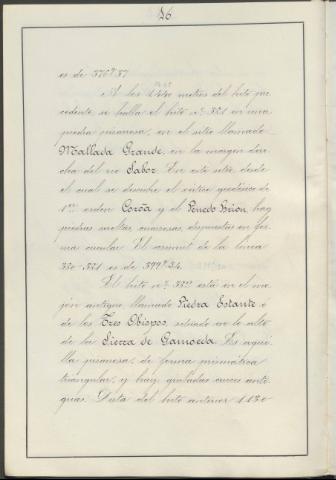 26
es de 376g.87
A los 1440 metros del hito pre-
cedente se halla el hito nº 321 en una
piedra pizarrosa, en el sitio llamado
Mallada Grande, en la margen dere-
cha del río Sabor. En este sitio, desde
el cual se descubre el vértice geodésico de
1er orden Coroa y el Penedo Brion, hay
piedras sueltas, cuarzosas, dispuestas en for-
ma circular. El azimut de la línea
320-321 es de 399g.34.
El hito nº 322 está en el mo-
jón antiguo llamado Piedra Estante ó
de los Tres Obispos, situado en lo alto
de la Sierra de Gamoeda. Es aque-
lla pizarrosa, de forma prismática
triangular, y hay grabadas cruces anti-
guas. Dista del hito anterior 1130